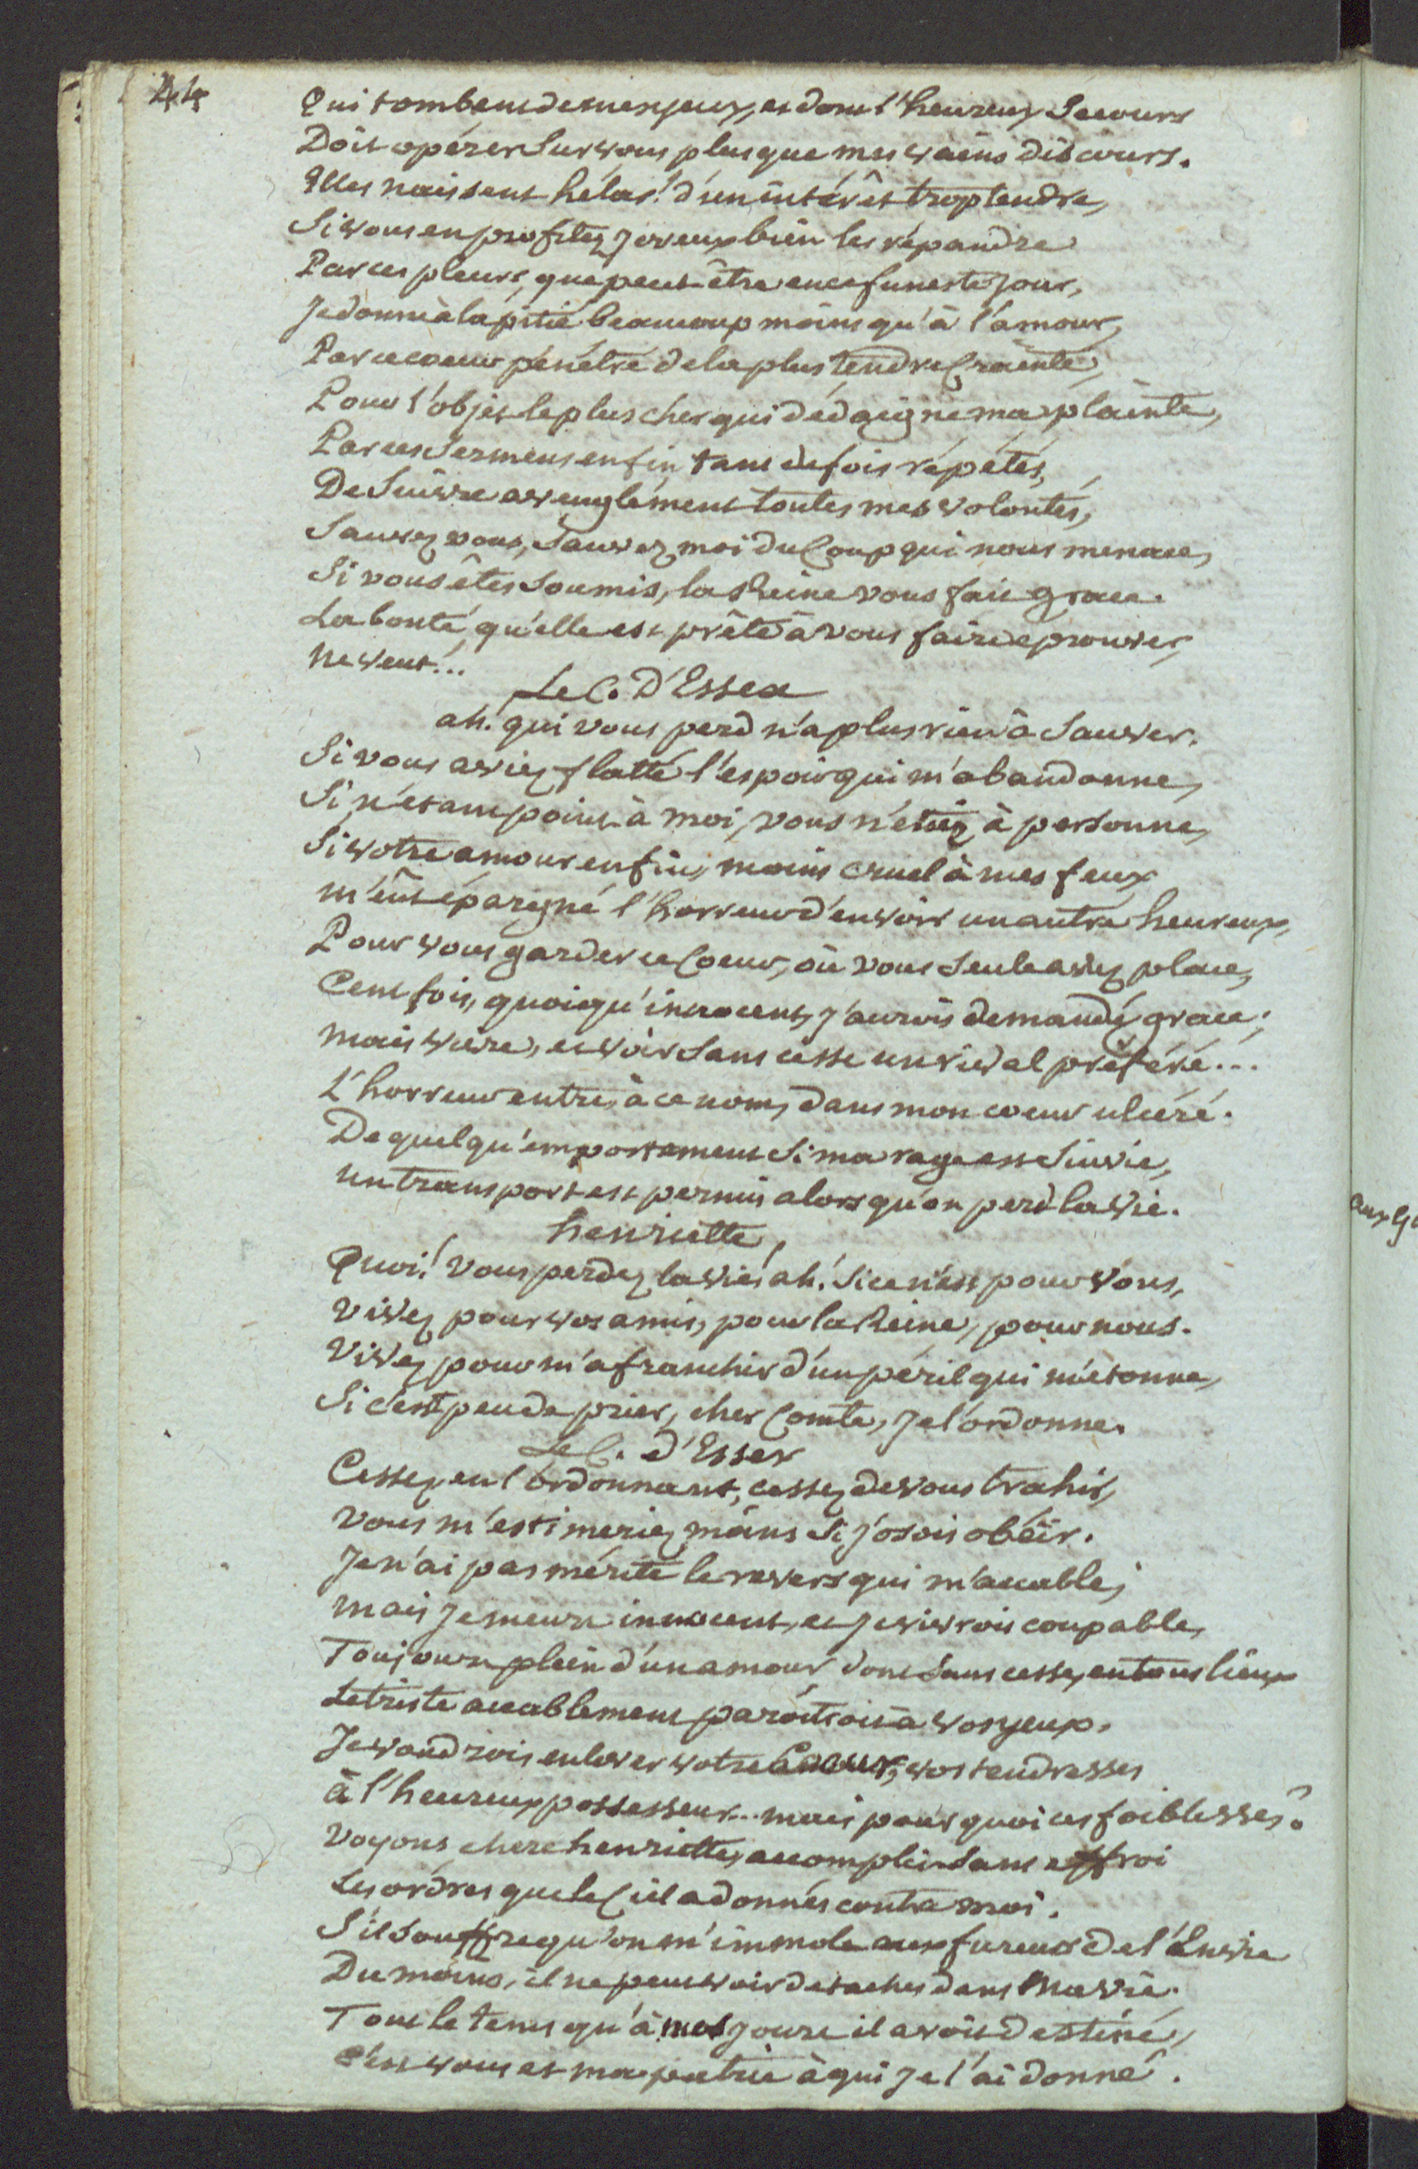 44
Qui tombent de mes yeux, et dont l'heureux Secours
Doit opérer Sur vous plus que mes vains discours.
Elles naissent hélas! d'un intérêt trop tendre,
Si vous en profitez Je veux bien les répandre
Par ces pleurs, que peut-être en ce funeste jour,
Je donne à la pitié beaucoup moins qu'à l'amour,
Par ce coeur pénétré de la plus tendre Crainte,
Pour l'objet le plus cher qui dédaigne ma plainte,
Par ces Sermens enfin, tant de fois répétés,
De Suivre aveuglément toutes mes volontés,
Sauvez vous, Sauvez moi du Coup qui nous menace,
Si vous êtes Soumis, la Reine vous fait grace.
La bonté, qu'elle est prête à vous faire eprouver,
ne veut...
Le C. D'Essex
ah! qui vous perd n'a plus rien à Sauver.
Si vous aviez flatté l'espoir qui m'abandonne,
Si n'étant point à moi, vous n'étiez à personne,
Si votre amour enfin, moins cruel à mes feux
m'eût épargné l'horreur d'en voir un autre heureux,
Pour vous garder ce Coeur, où vous Seule avez place,
Cent fois, quoiqu'innocent, j'aurois demandé grace;
mais vivre, et voir Sans cesse un rival préféré...
L'horreur entre, à ce nom, dans mon coeur ulcéré.
De quelqu'emportement Si ma rage est Suivie,
un transport est permis alors qu'on perd la vie.
henriette,
Quoi! vous perdez la vie! ah! Si ce n'est pour vous,
vivez pour vos amis, pour la Reine, pour nous.
Vivez pour m'afranchir d'un péril qui m'étonne,
Si c'est peu de prier, cher Comte, Je l'ordonne.
Le C. d'Essex
Cessez en l'ordonnant, cessez de vous trahir,
vous m'estimeriez moins Si j'osois obéir.
Je n'ai pas mérité le revers qui m'accable;
mais Je meurs innocent, et Je vivrois coupable,
Toujours plein d'un amour dont Sans cesse, en tous lieux
Le triste accablement paroîtroit à vos yeux.
Je voudrois enlever votre Coeur, vos tendresses
à l'heureux possesseur... mais pourquoi ces foiblesses?
voyons chere henriette, accomplir Sans effroi
Les ordres que le Ciel a donnés contre moi.
S'il Souffre qu'on m'immole aux fureurs de l'Envie
Du moins, il ne peut voir de taches dans Ma vie.
Tout le tems qu'à mes jours il avoit destiné,
C'est vous et ma patrie à qui Je l'ai donné.